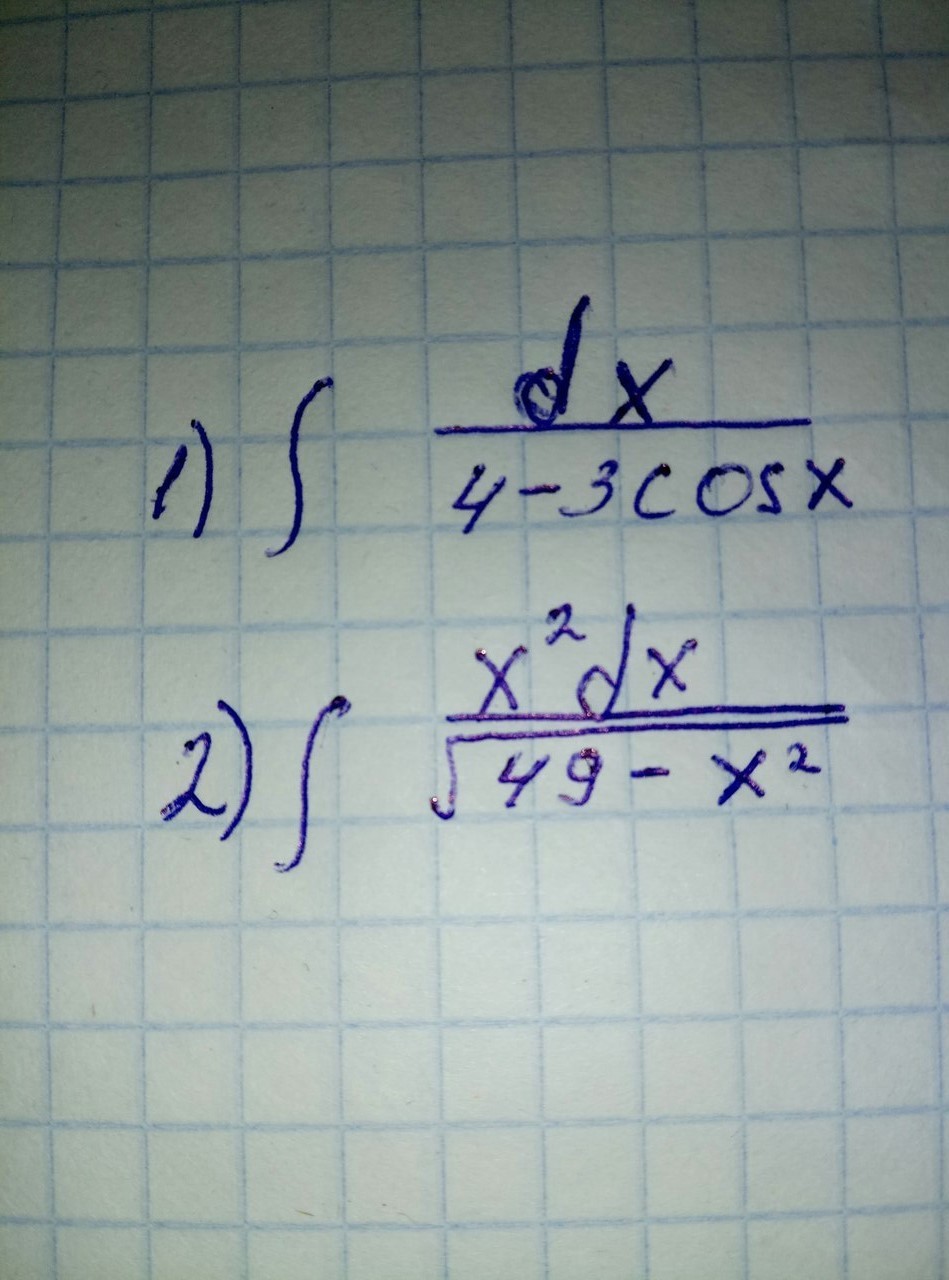 1) ∫ dx / (4-3cosx)
2) ∫ x²dx / √(49-x²)